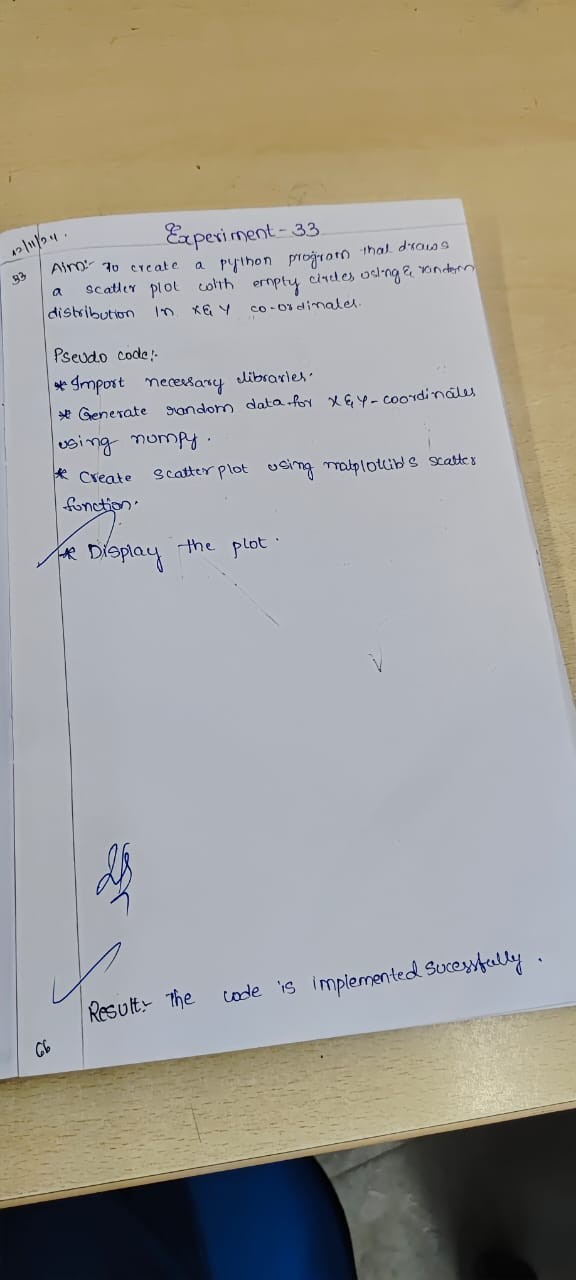 12/11/24.
Experiment-33
33
Aim:- To create a python program that draws
a scatter plot with empty circles using & random
distribution in X & Y co-ordinates.
Pseudo code:-
* Import necessary libraries.
* Generate random data for X & Y-coordinates
using numpy.
* Create Scatterplot using matplotlib's scatter
function.
* Display the plot.
Result:- The code is implemented sucessfully.
66